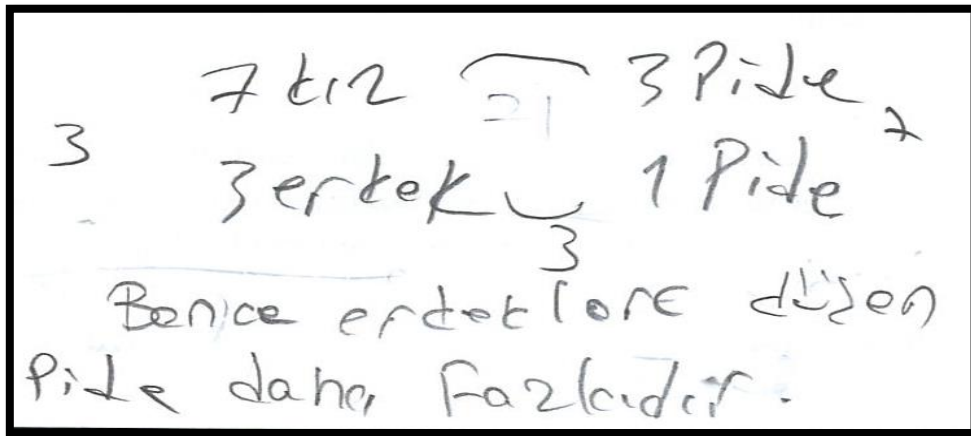 7 kız 21 3 Pide 7
3 3 erkek 3 1 Pide
Bence erkeklere düşen
Pide daha fazladır.